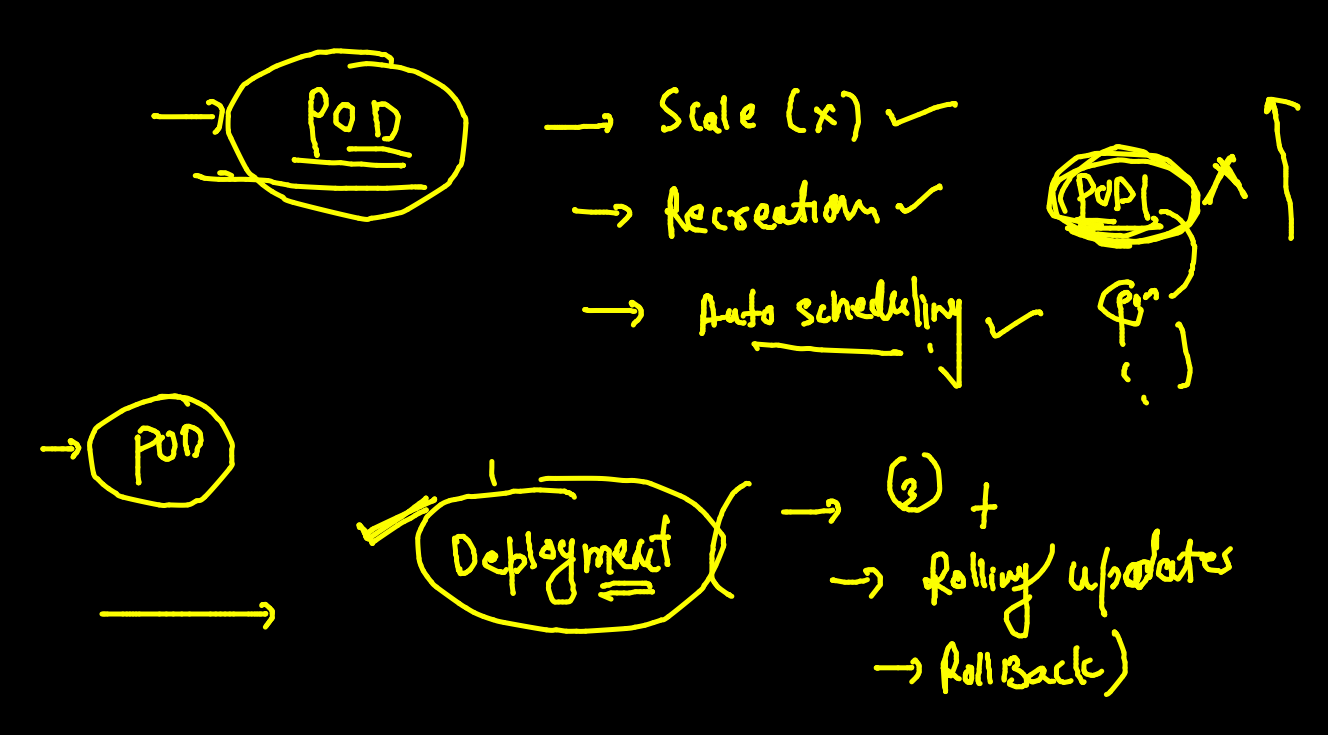 POD
→ Scale (x) ✓
→ Recreation ✓
POD1 X
→ Auto scheduling ✓
→ POD
Deployment
→ +
→ Rolling updates
→ RollBack)